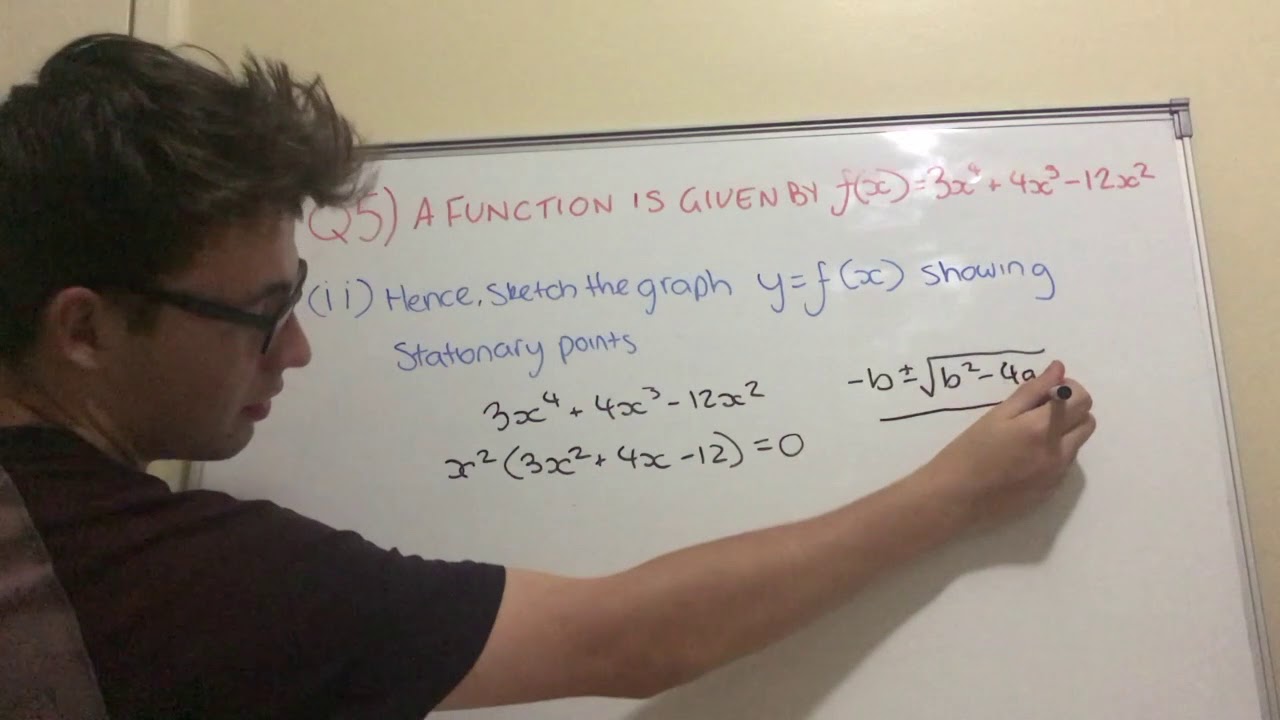 Q5) A FUNCTION IS GIVEN BY f(x)=3x⁴+4x³-12x²
(ii) Hence, sketch the graph y=f(x) showing
Stationary points
3x⁴+4x³-12x²
-b±√b²-4a
x²(3x²+4x-12)=0